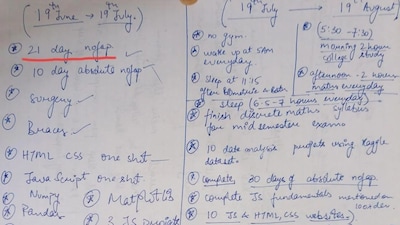 (19th June → 19th July.)
21 day nofap
10 day absolute nofap
Surgery
Braces
HTML CSS one shit
JavaScript one shit
Numpy
Pandas
Matplotlib
3 JS
19th July → 19th August)
no gym.
wake up at 5AM
everyday.
sleep at 11:15
after
sleep (6-5-7 hours everyday)
finish discrete maths syllabus
for mid semester exams
10 data analysis projects using Kaggle
dataset.
complete 30 days of absolute nofap
complete JS fundamentals mentioned on
10 JS & HTML, CSS websites.
(5:30 - 7:30)
morning 2 hour
college study
afternoon - 2 hours
maths everyday